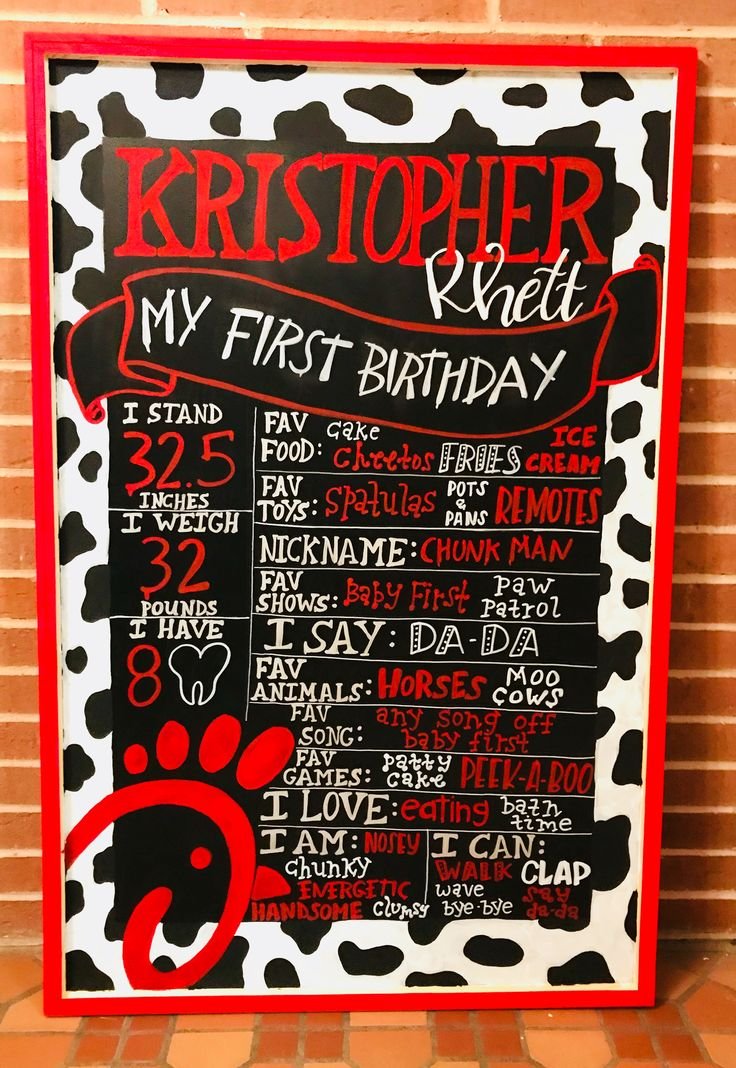 KRISTOPHER
Rhett
MY FIRST BIRTHDAY
I STAND
32.5
INCHES
I WEIGH
32
POUNDS
I HAVE
8
FAV FOOD: cake Cheetos FRIES ICE CREAM
FAV TOYS: Spatulas POTS & PANS REMOTES
NICKNAME: CHUNK MAN
FAV SHOWS: Baby First Paw Patrol
I SAY: DA-DA
FAV ANIMALS: HORSES MOO COWS
FAV SONG: any song off baby first
FAV GAMES: patty cake PEEK-A-BOO
I LOVE: eating bath time
I AM: NOSEY
chunky
ENERGETIC
HANDSOME clumsy
I CAN:
WALK CLAP
wave bye-bye say da-da